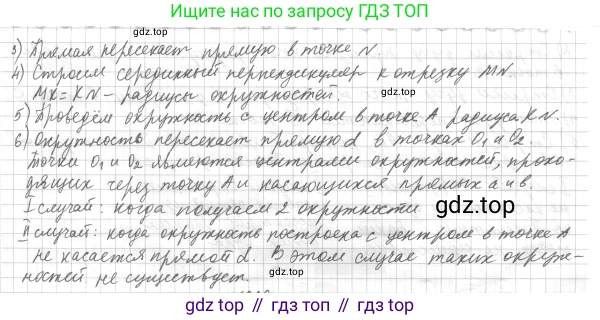 Ищите нас по запросу ГДЗ ТОП
3) Прямая пересекает прямую в точке N.
4) Строим серединный перпендикуляр к отрезку MN.
MK = KN – радиусы окружностей.
5) Проведём окружность с центром в точке A радиуса KN.
6) Окружность пересекает прямую d в точках O₁ и O₂.
Точки O₁ и O₂ являются центрами окружностей, прохо-
дящих через точку A и касающихся прямых a и b.
I случай: когда получаем 2 окружности
gdz.top
II случай: когда окружность построена с центром в точке A
не касается прямой d. В этом случае таких окруж-
ностей не существует.
gdz.top // гдз топ // gdz top